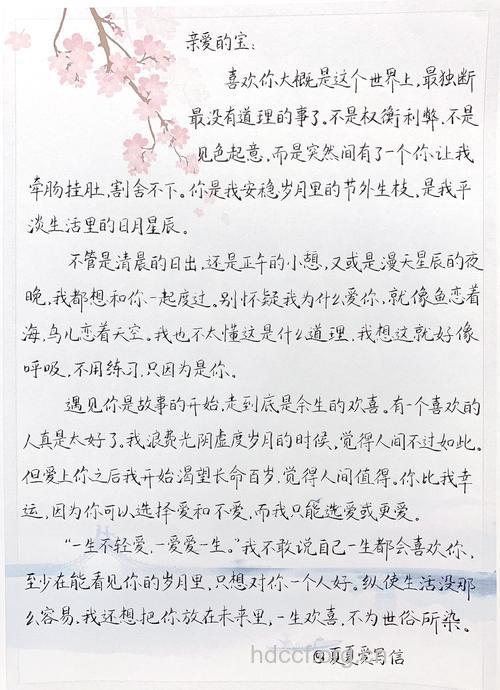 亲爱的宝：
喜欢你大概是这个世界上，最独断
最没有道理的事了。不是权衡利弊，不是
见色起意，而是突然间有了一个你让我
牵肠挂肚，割舍不下。你是我安稳岁月里的节外生枝，是我平
淡生活里的日月星辰。
不管是清晨的日出，还是正午的小憩，又或是漫天星辰的夜
晚，我都想和你一起度过。别怀疑我为什么爱你，就像鱼恋着
海，鸟儿恋着天空。我也不太懂这是什么道理，我想这就好像
呼吸，不用练习，只因为是你。
遇见你是故事的开始，走到底是余生的欢喜。有一个喜欢的
人真是太好了。我浪费光阴虚度岁月的时候，觉得人间不过如此。
但爱上你之后我开始渴望长命百岁，觉得人间值得。你比我幸
运，因为你可以选择爱和不爱，而我只能选爱或更爱。
“一生不轻爱，一爱爱一生。”我不敢说自己一生都会喜欢你，
至少在能看见你的岁月里，只想对你一个人好。纵使生活没那
么容易，我还想把你放在未来里，一生欢喜，不为世俗所染。
@夏夏爱写信